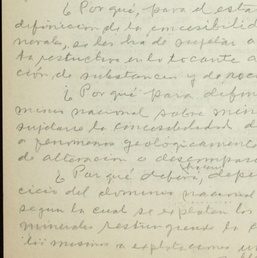 ¿Por qué, para el esta
definición de la concesibilidad
nerales, se les ha de sujetar a
ta restrictiva en lo tocante a
ción de substancias y de roca
¿Por qué para defini
minio nacional sobre mine
sujetarse la concesibilidad d
a fenómenos geológicamente
de alteración o descomposi
¿Por qué debiera, depe
hacerse
cicio del dominio nacional
según la cual se explotan los
minerales restringiendo la c
mismos a explotaciones